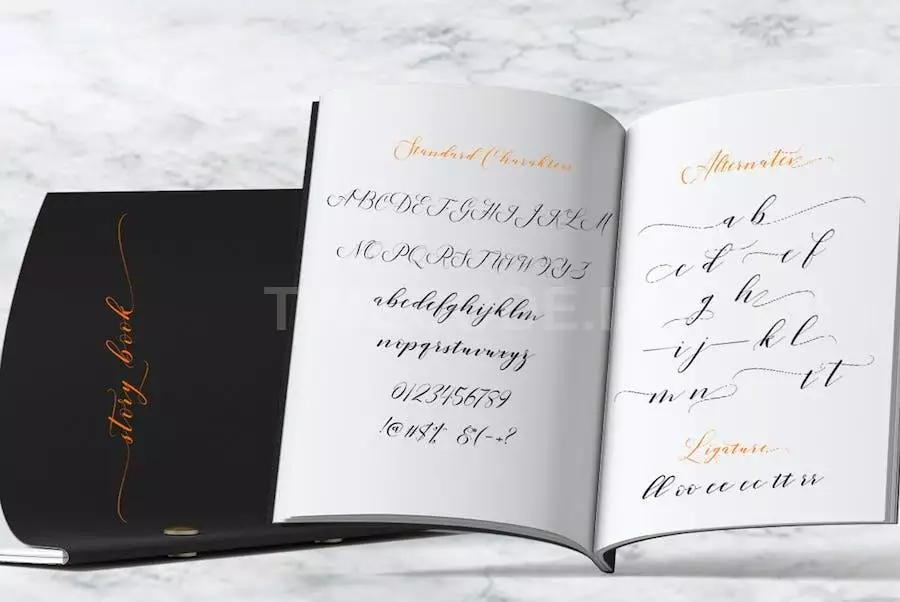 story book
Standard Charakters
ABCDEFGHIJKLM
NOPQRSTUVWXYZ
abcdefghijklm
nopqrstuvwxyz
0123456789
!@#$% &*(-+?
Alternates
a b
c d e f
g h
i j k l
m n t t
Ligature
ll oo cc ee tt rr